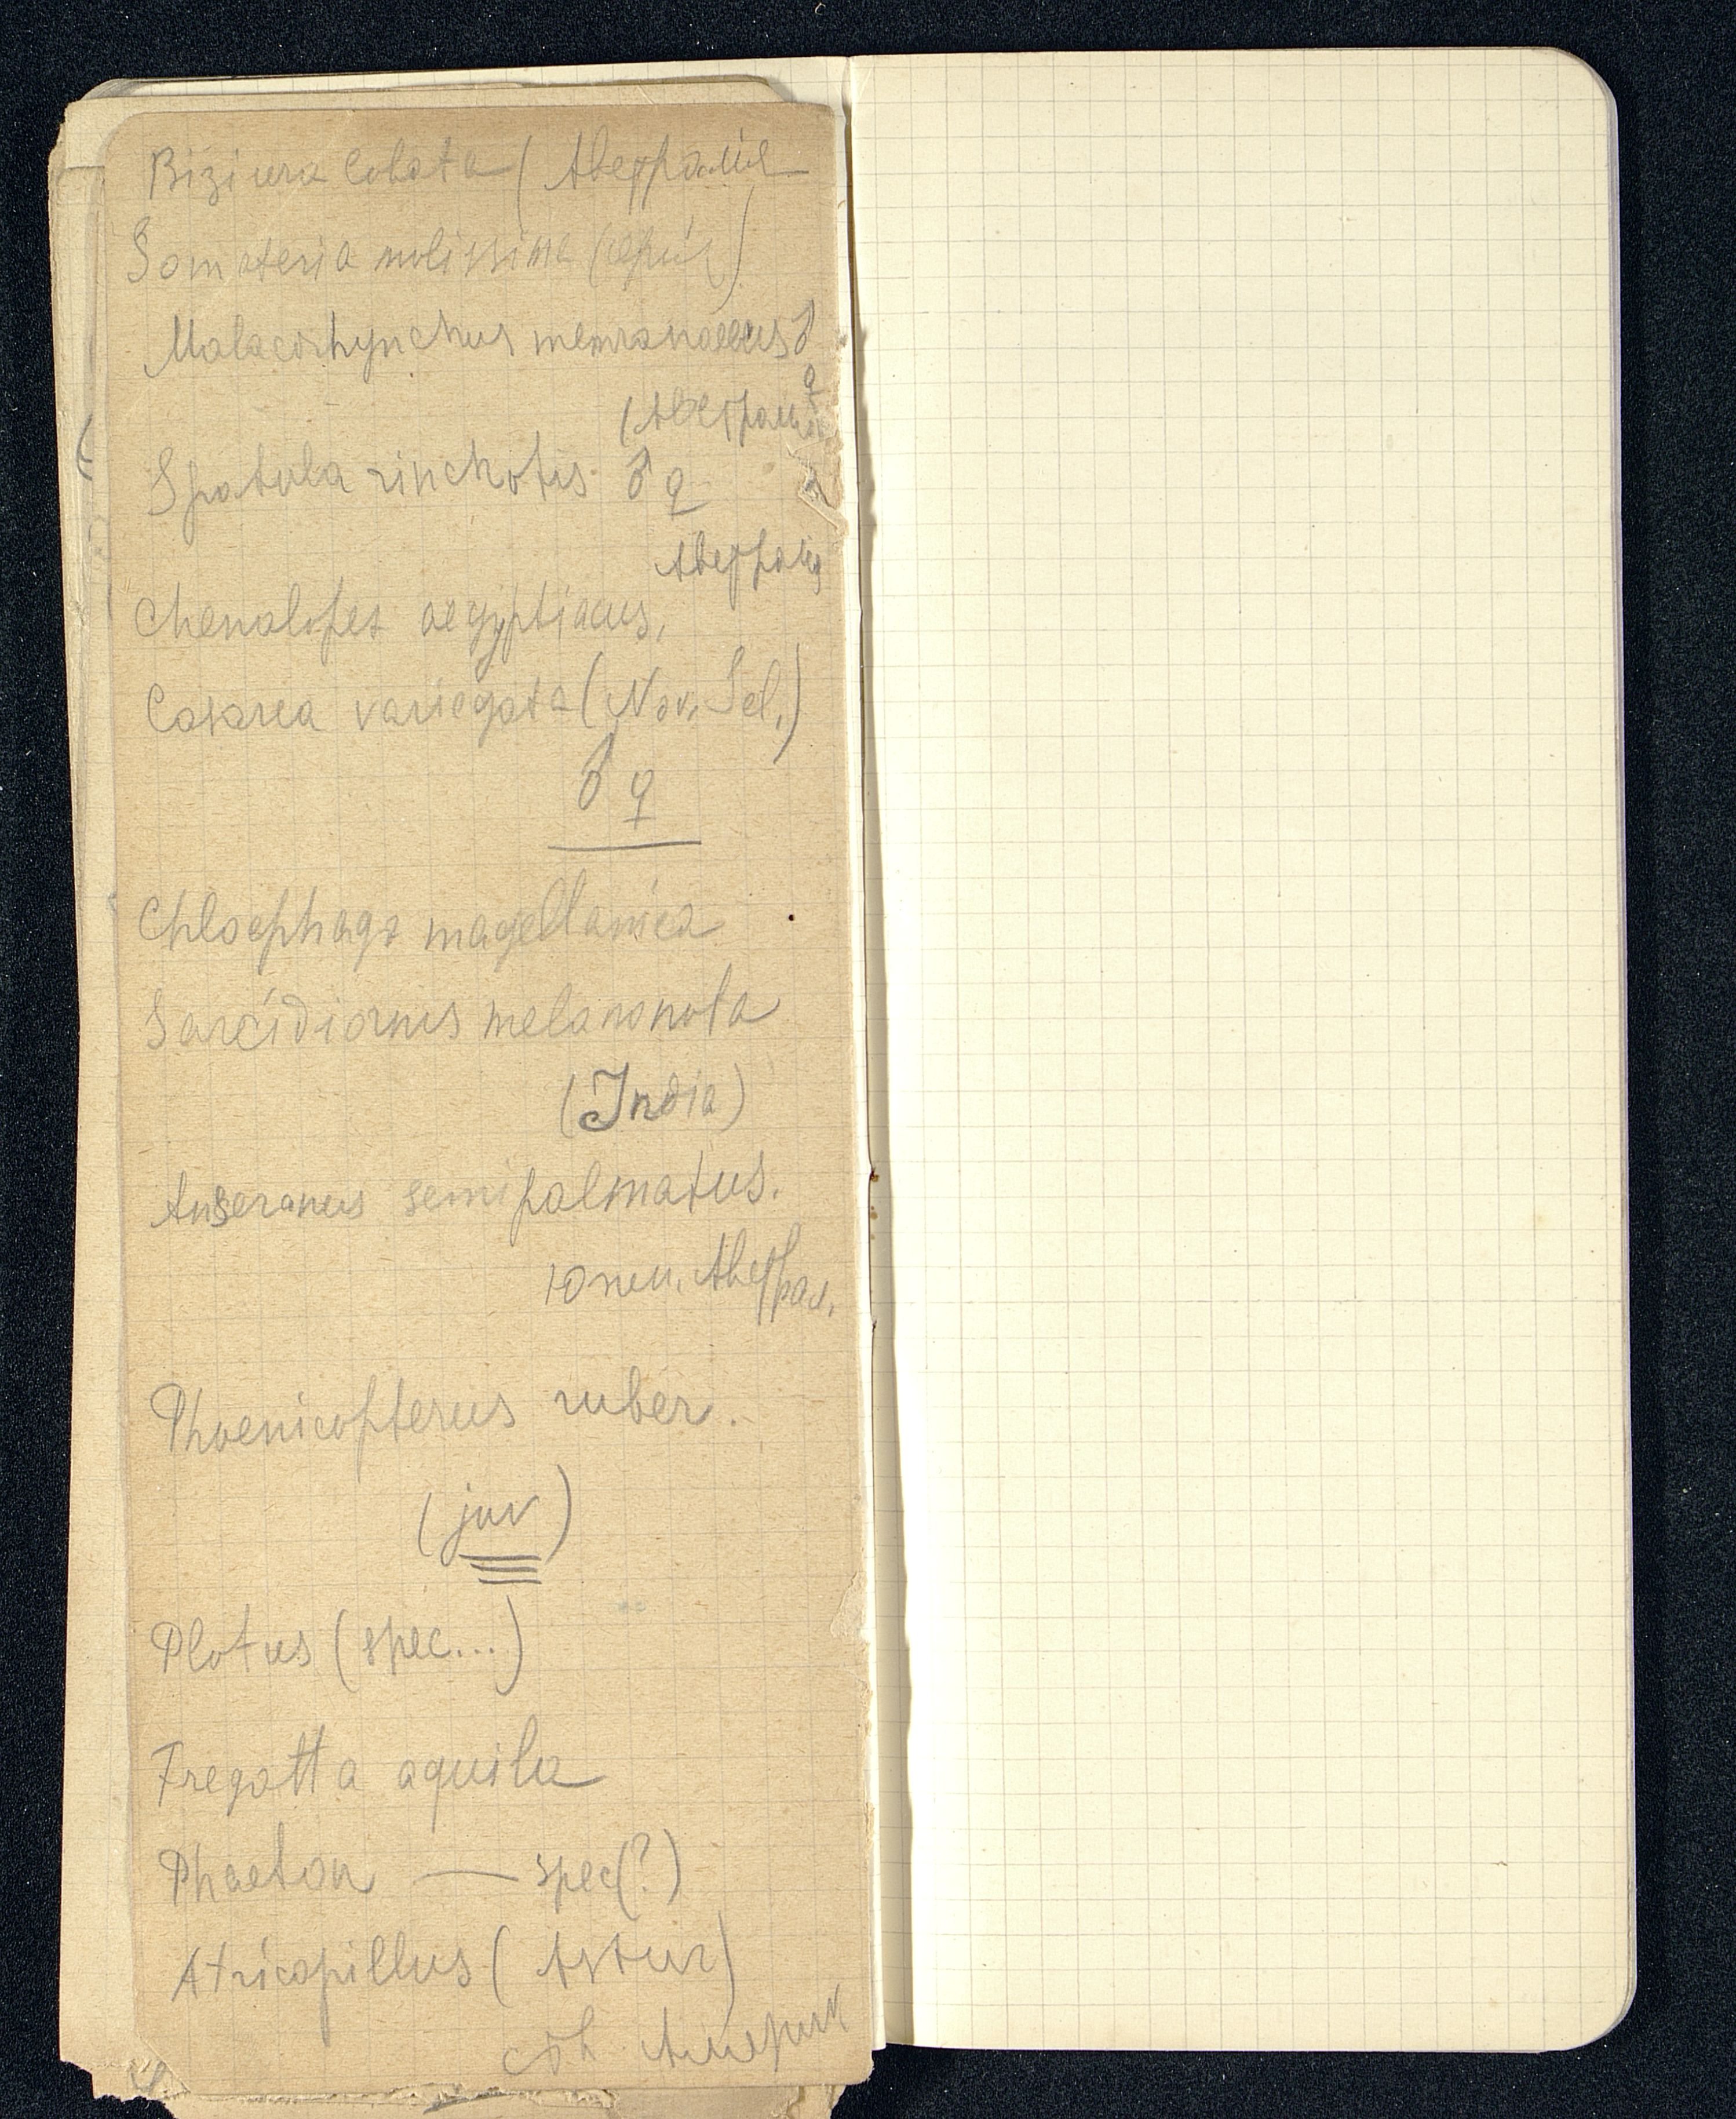 Biziura lobata (Австралия
Somateria molissima
Malacorhynchus memranaceus ♂
♀
(Австралия
Spatula rinchotis ♂ ♀
Австралия
Chenalopex aegyptiacus,
Casarca variegata (Nov. Sel.)
♂ ♀
Chloephaga magellanica
Sarcidiornis melanonota
(India)
Anseranus semipalmatus.
Южн. Австрал.
Phoenicopterus ruber.
(juv)
Plotus (spec...)
Fregatta aquila
Phaeton — spec(?)
Atricapillus (Astur)
Америк